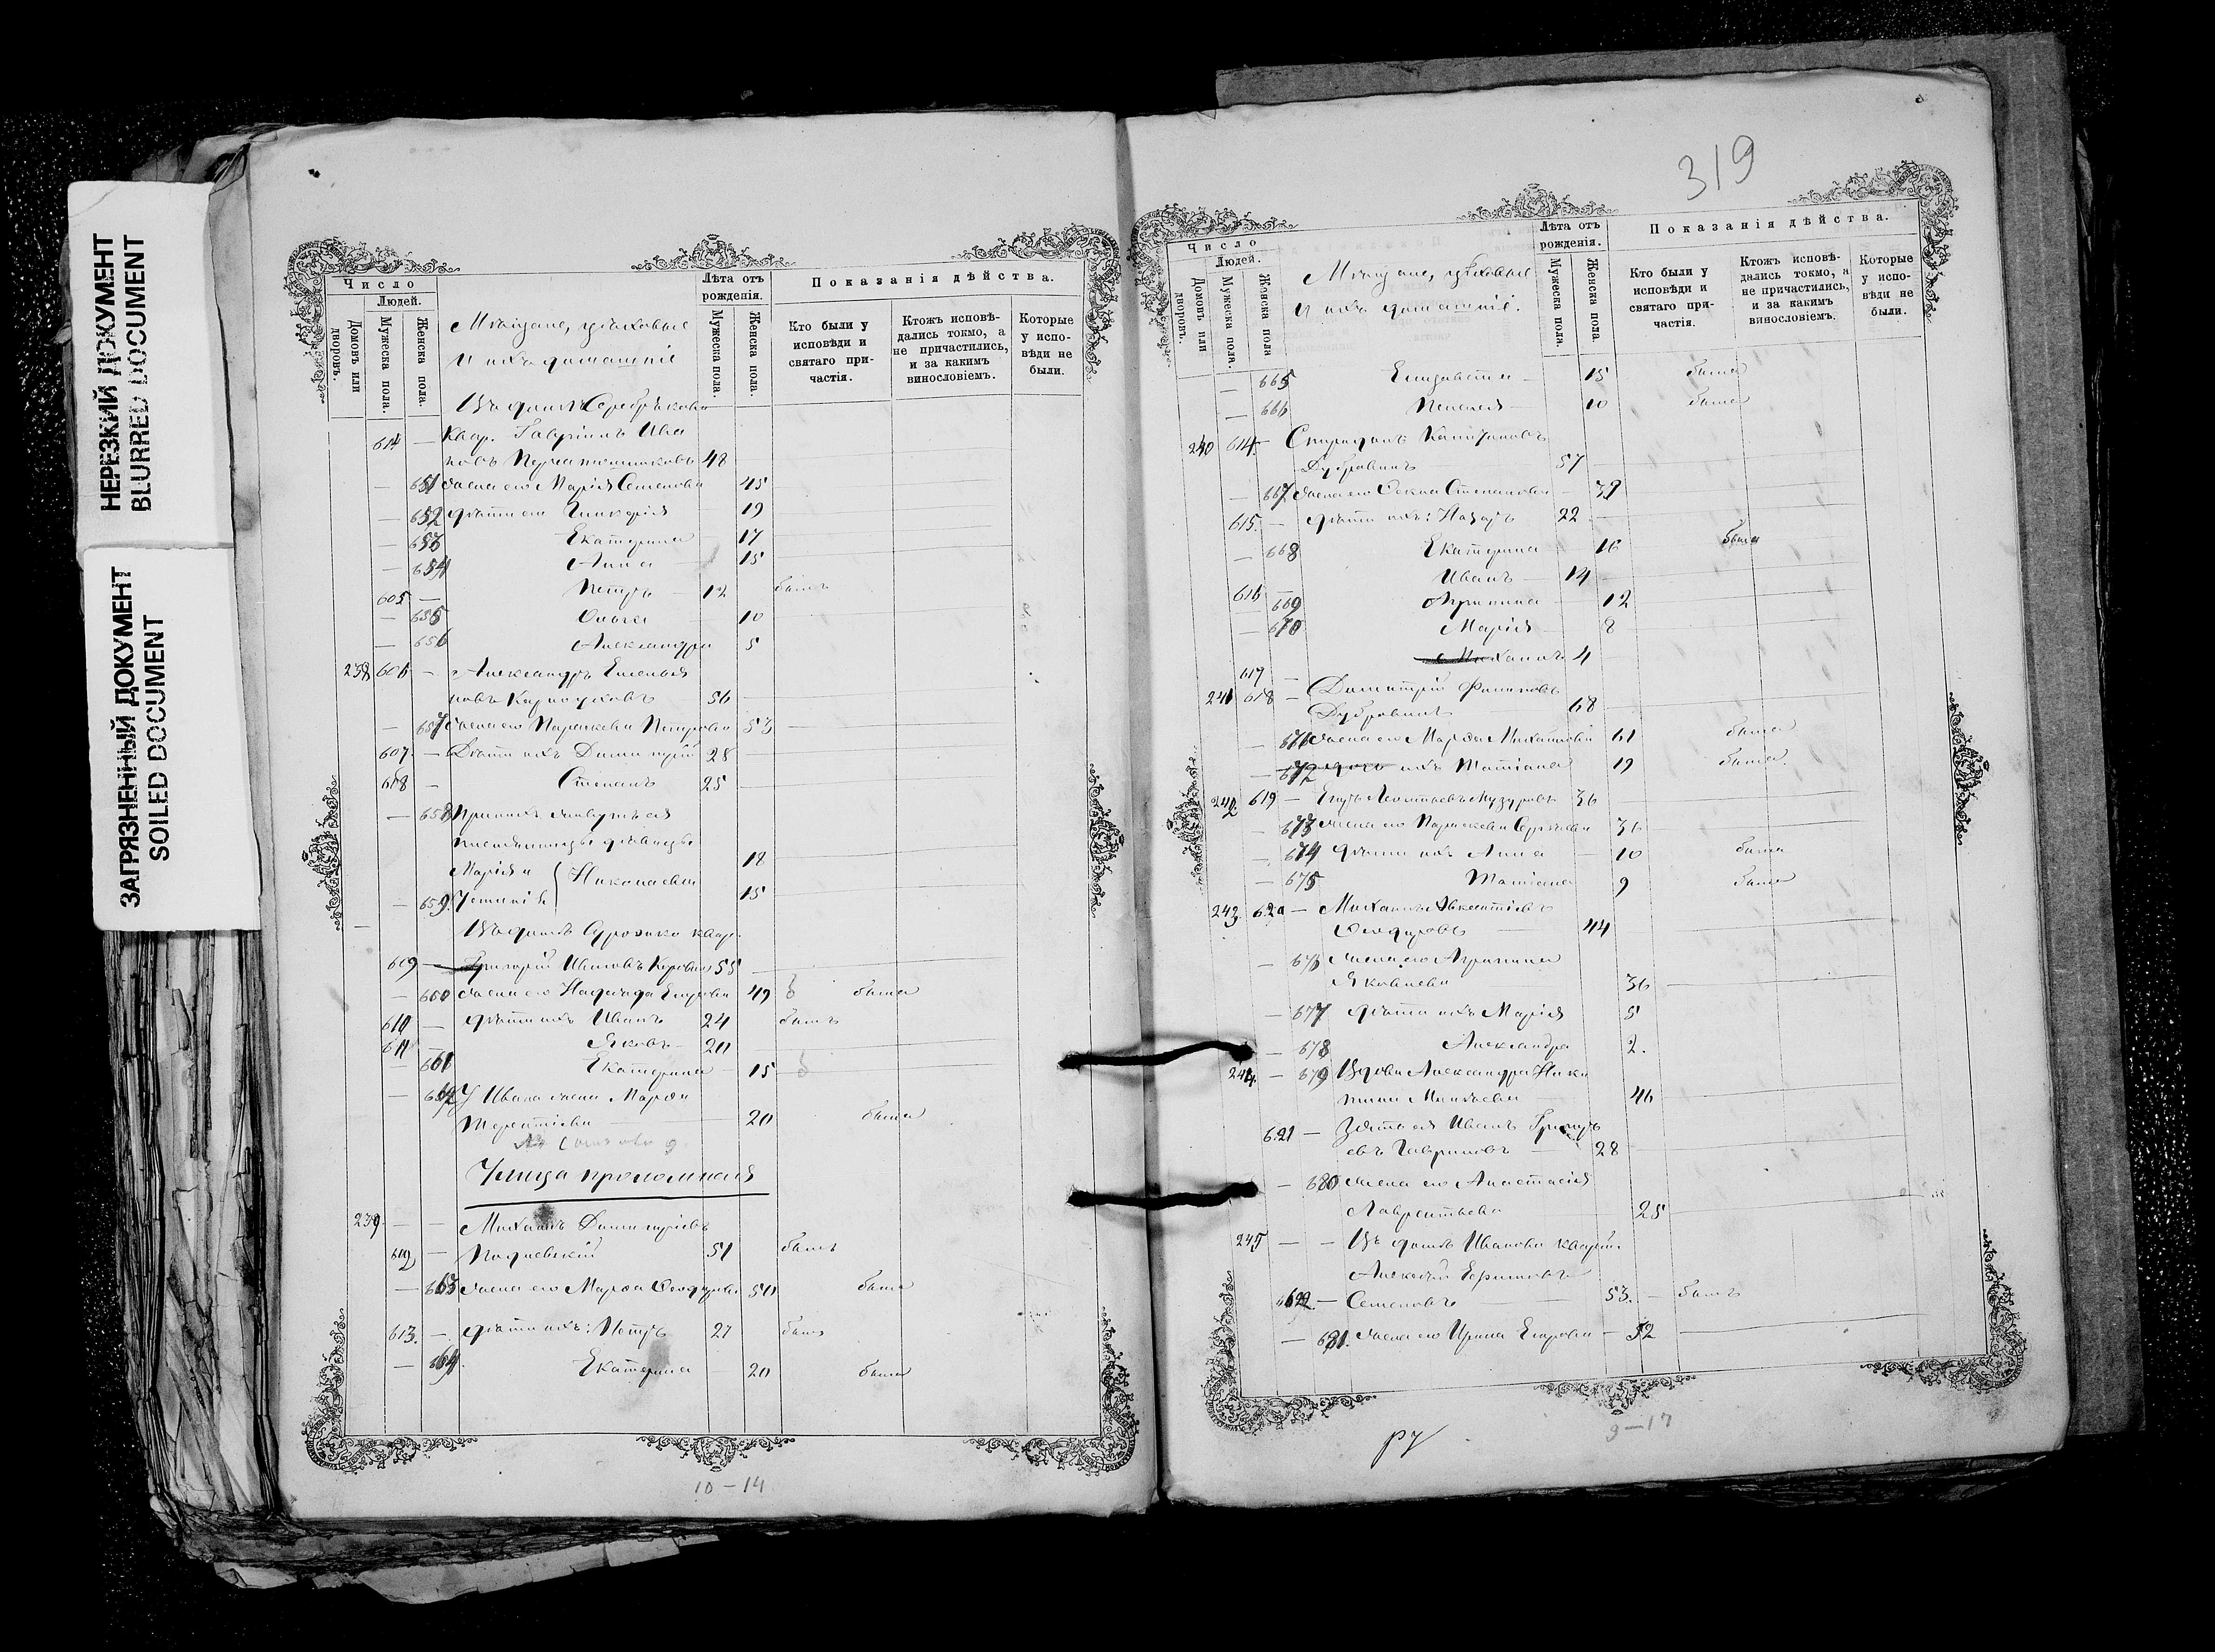 НЕРЕЗКИЙ ДОКУМЕНТ
BLURRED DOCUMENT
ЗАГРЯЗНЕННЫЙ ДОКУМЕНТ
SOILED DOCUMENT
Число
Людей.
Домовъ или дворовъ.
Мужеска пола.
Женска пола.
Мѣщане, цѣховые
и ихъ домашніе
Лѣта отъ рожденія.
Мужеска пола.
Женска пола.
Показанія дѣйства.
Кто были у исповѣди и святаго причастія.
Ктожъ исповѣдались токмо, а не причастились, и за какимъ винословіемъ.
Которые у исповѣди не были.
Въ домѣ Серебрякова
614 — Квар. Гавріилъ Ива
новъ 48
— 651 жена его Марія Семенова 45
— 652 дѣти его Гликерія 19
— 653 Екатерина 17
— 654 Анна 15
605 — Петръ 12 былъ
— 655 Ольга 10
— 656 Александра 5
238 606 — Александръ Емелья
новъ 56
— 657 жена его Параскева Петрова 53
607 — Дѣти ихъ Димитрій 28
608 — Степанъ 25
— 658
дѣвицы 18
Марія и Николаевы
— 659 15
Въ домѣ квар.
609 — Григорій Ивановъ 55
— 660 жена его Надежда Егорова 49 была
610 — дѣти ихъ Иванъ 24 былъ
611 — Яковъ 20
— 661 Екатерина 15
— 662 У Ивана жена Марѳа
Терентіева 20 была
Улица проломная
239 — — Михаилъ Димитріевъ
612 — 51 былъ
— 663 жена его Марѳа Ѳеодорова 50 была
613. — дѣти ихъ: Петръ 27 былъ
— 664 Екатерина 20 была
10 – 14
319
Число
Людей.
Домовъ или дворовъ.
Мужеска пола.
Женска пола
Мѣщане, цѣховые
и ихъ домашніе.
Лѣта отъ рожденія.
Мужеска пола.
Женска пола.
Показанія дѣйства.
Кто были у исповѣди и святаго причастія.
Ктожъ исповѣдались токмо, а не причастились, и за какимъ винословіемъ.
Которые у исповѣди не были.
— 665 Елизавета 15 была
— 666 Пелагея 10 была
240 614 — Спиридонъ Капитоновъ
Дубровинъ 57
— 667 жена его Ѳекла Степанова 39
615. — дѣти ихъ: Назаръ 22
— 668 Екатерина 16 была
616 — Иванъ 14
669 Агрипина 12
— 670 Марія 8
617 — Михаилъ 4
241 618 — Димитрій Филиповъ
Дубровинъ 68
— 671 жена его Марѳа Михайлова 61 была
— 672 дочь ихъ Татіана 19 была
242. 619 — Егоръ Леонтьевъ 36
— 673 жена его Параскева Сергѣева 36
— 674 дѣти ихъ Анна 10 была
— 675 Татіана 9 была
243 620 — Михаилъ
Ѳеодоровъ 44
— 676 жена его Агрипина
Яковлева 36
— 677 дѣти ихъ Марія 5
— 678 Александра 2.
244. — 679 Вдова Александра Ники
тина 46
621 — Зять ея Иванъ Григорь
евъ Гавриловъ 28
— 680 жена его Анастасія
Лаврентьева 25
245 — — Въ домѣ Иванова кварт.
Алексѣй Ефимовъ
622 — Семеновъ 53. — былъ
— 681. жена его Ирина Егорова — 52
9 – 17